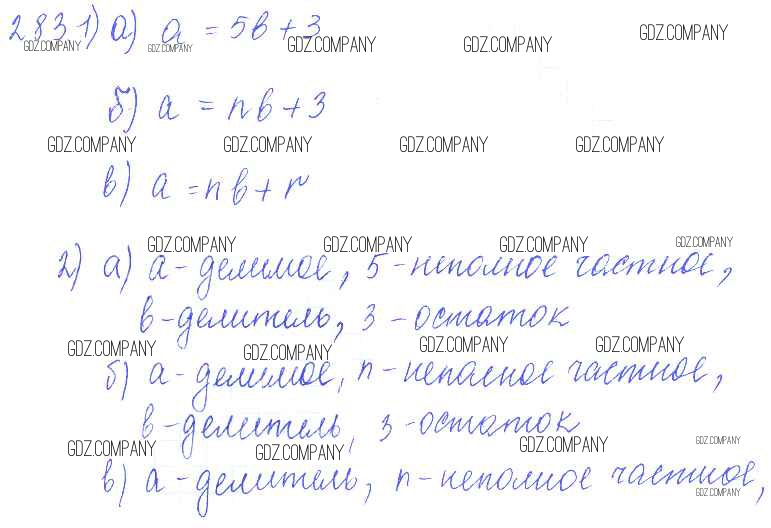 283 1) а) a = 5b + 3
GDZ.COMPANY GDZ.COMPANY GDZ.COMPANY GDZ.COMPANY GDZ.COMPANY
б) a = nb + 3
GDZ.COMPANY GDZ.COMPANY GDZ.COMPANY GDZ.COMPANY
в) a = nb + r
GDZ.COMPANY GDZ.COMPANY GDZ.COMPANY GDZ.COMPANY
2) а) a - делимое, 5 - неполное частное,
b - делитель, 3 - остаток
GDZ.COMPANY GDZ.COMPANY GDZ.COMPANY GDZ.COMPANY
б) a - делимое, n - неполное частное,
b - делитель, 3 - остаток
GDZ.COMPANY GDZ.COMPANY GDZ.COMPANY GDZ.COMPANY
в) a - делитель, n - неполное частное,
GDZ.COMPANY